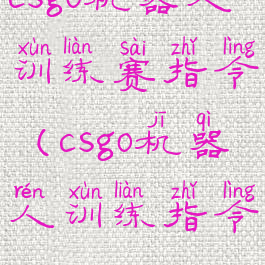 csgo机器人
xùn liàn sài zhǐ lìng
训练赛指令
jī qì
(csgo机器
rén xùn liàn zhǐ lìng
人训练指令